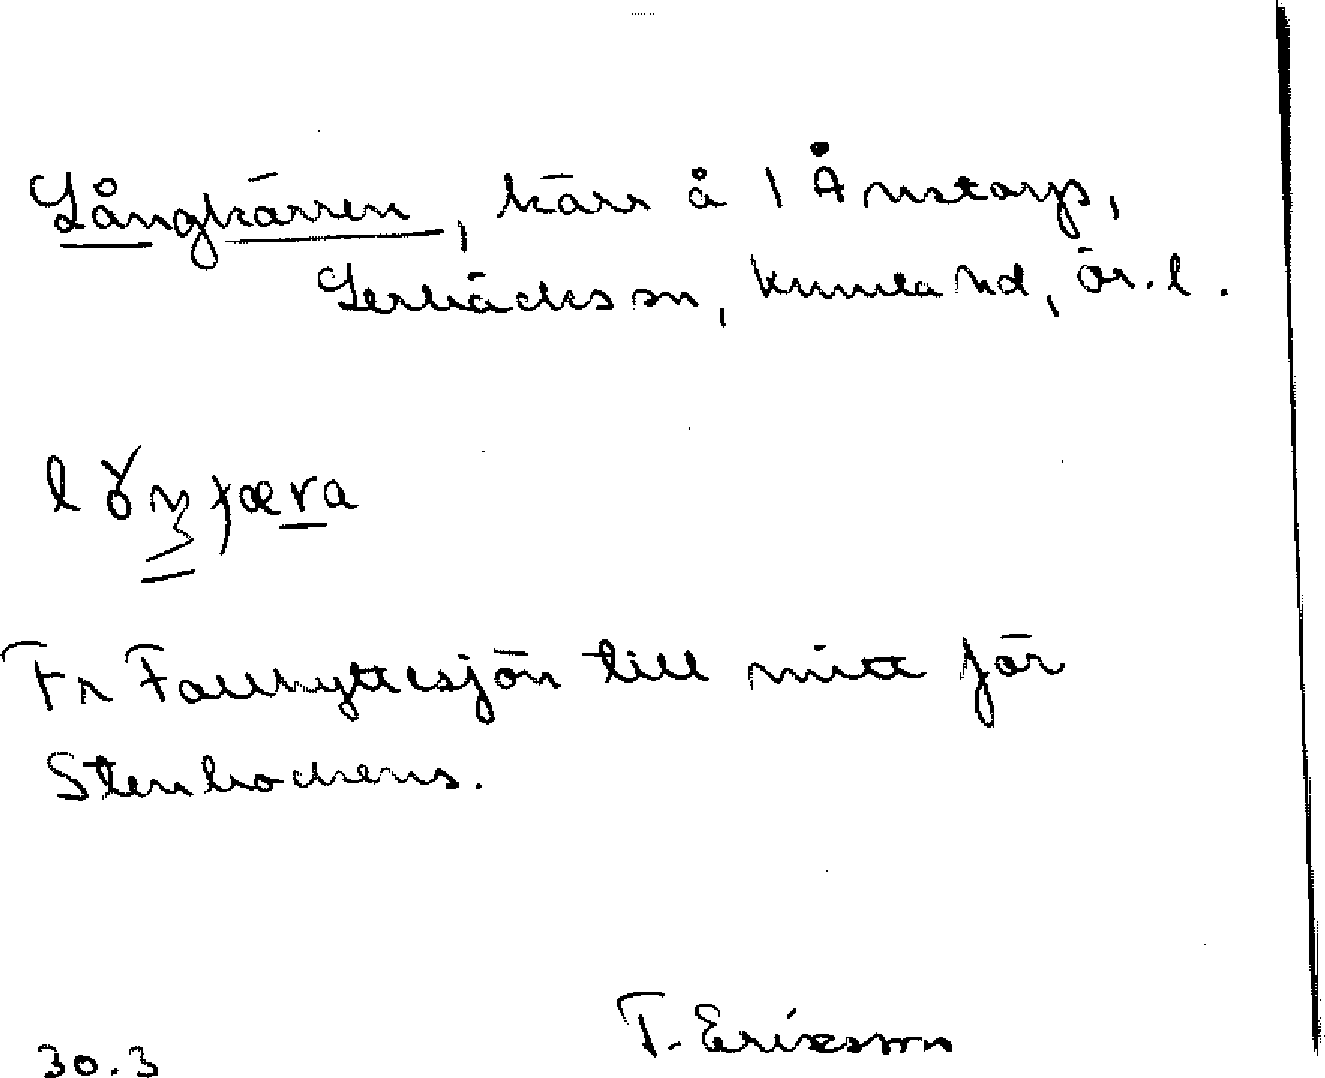 Långkärren, kärr å 1 Ånstorps,
Lerbäcks sn, Kumla hd, ör. l.
Fr Fallhyttesjön till mitt för
Stenbockens.
T. Ericsson
30.3